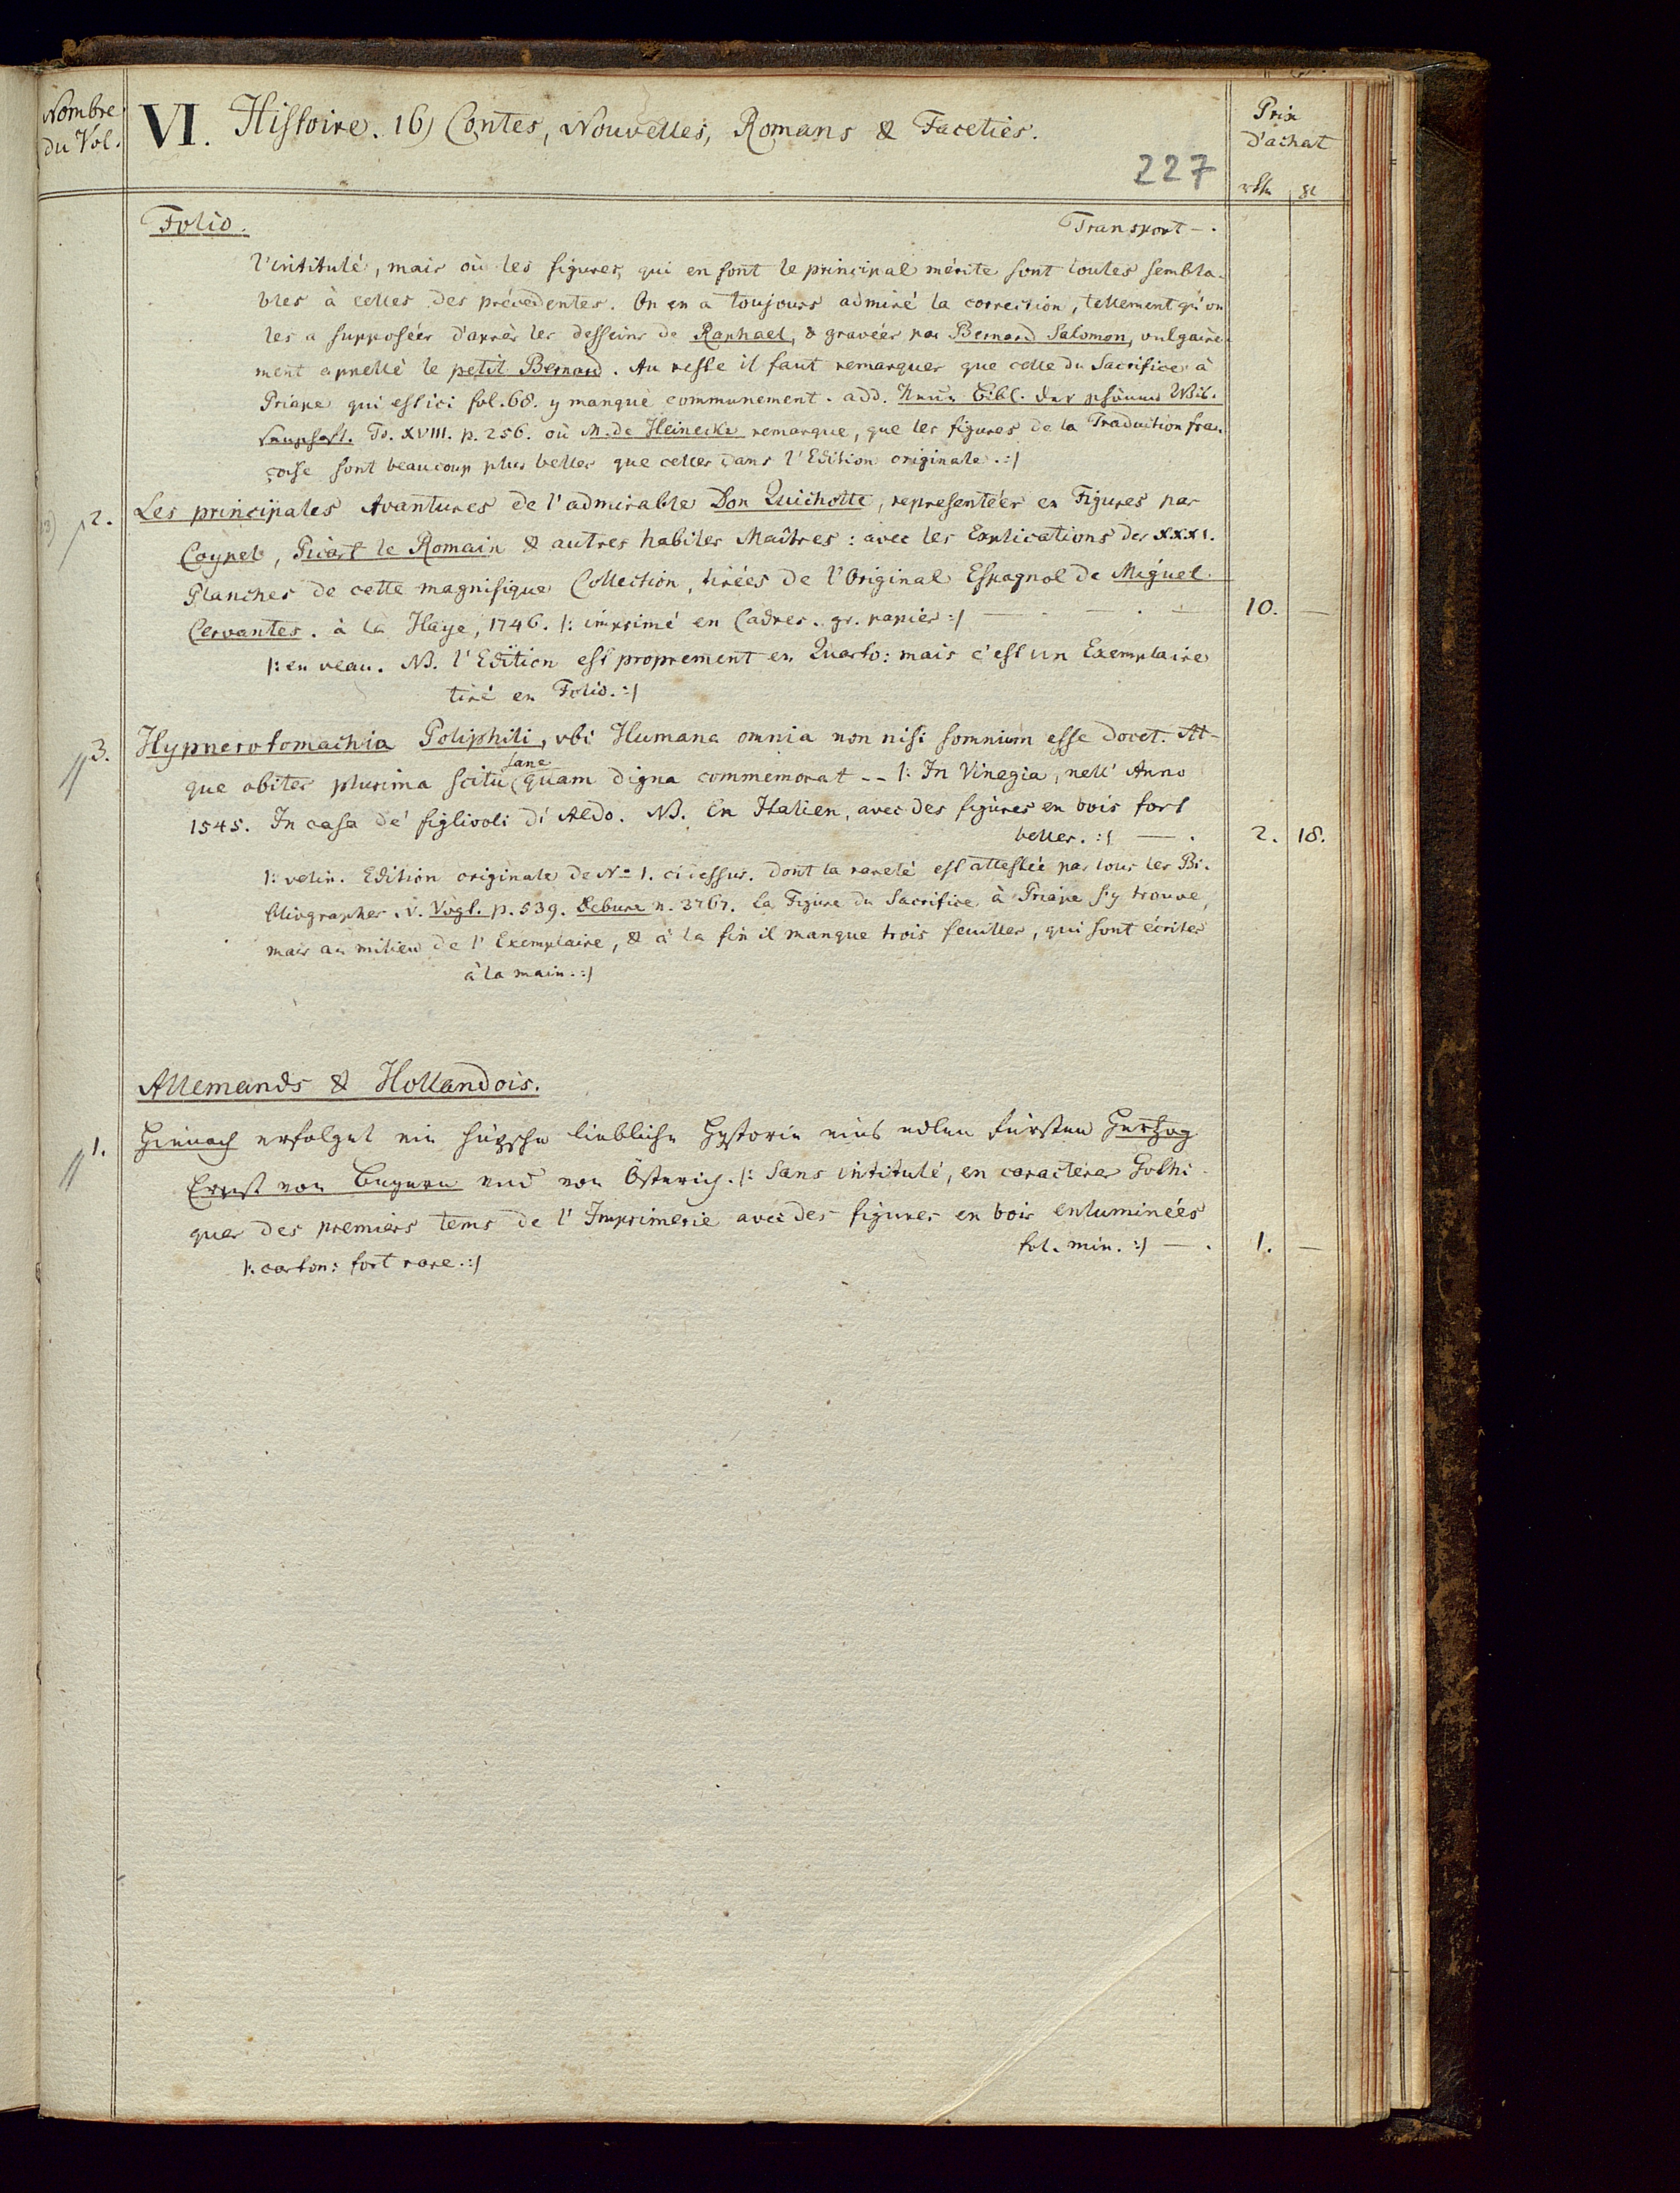 Nombre
du Vol.
VI. Histoire. 16) Contes, Nouvelles, Romans & Faceties.
Prix
d'achat
227
rthl gl
Folio.
Transport - .
l'intitulé, mais où les figures, qui en font le principal mérite sont toutes sembla-
bles à celles des précedentes. On en a toujours admiré la correction, tellement qu'on
les a supposées d'après les desseins de Raphael, & gravées par Bernard Salomon, vulgaire-
ment appellé le petit Bernard. Au reste il faut remarquer que celle du Sacrifice à
Priape qui est ici fol. 68. y manque communement. add. Neue Bibl. der schönen Wis-
senschaft. To. XVIII. p. 256. où M. de Heinecke remarque, que les figures de la Traduction fran-
çoise sont beaucoup plus belles que celles dans l'Edition originale. :/
2. Les principales Avantures de l'admirable Don Quichotte, representées en Figures par
Coypel, Picart le Romain & autres habiles Maîtres: avec les Explications des XXXI.
Planches de cette magnifique Collection, tirées de l'Original Espagnol de Miguel
Cervantes. à la Haye, 1746. /: imprimé en Cadres. gr. papier :/ — . — . — 10. —
/: en veau. NB. l'Edition est proprement en Quarto: mais c'est un Exemplaire
tiré en Folio. :/
3. Hypnerotomachia Poliphili, vbi Humana omnia non nisi somnium esse docet. At-
sane
que obiter plurima scitu quam digna commemorat -- /: In Vinegia, nell' Anno
1545. In casa de' figlivoli di Aldo. NB. En Italien, avec des figures en bois fort
belles. :/ — . 2. 18.
/: velin. Edition originale de No 1. ci dessus. dont la rareté est attestée par tous les Bi-
bliographes. v. Vogt. p. 539. Debure n. 3767. la Figure du Sacrifice à Priape s'y trouve,
mais au milieu de l'Exemplaire, & à la fin il manque trois feuilles, qui sont écrites
à la main. :/
Allemands & Hollandois.
1. Hienach erfolget ein hüpsche liebliche Hystorie eins edlen fürsten Hertzog
Ernst von Bayern und von Österich. /: Sans intitulé, en caractères Gothi-
ques des premiers tems de l'Imprimerie avec des figures en bois enluminées
fol. min. :/ — . 1. —
/: carton: fort rare. :/